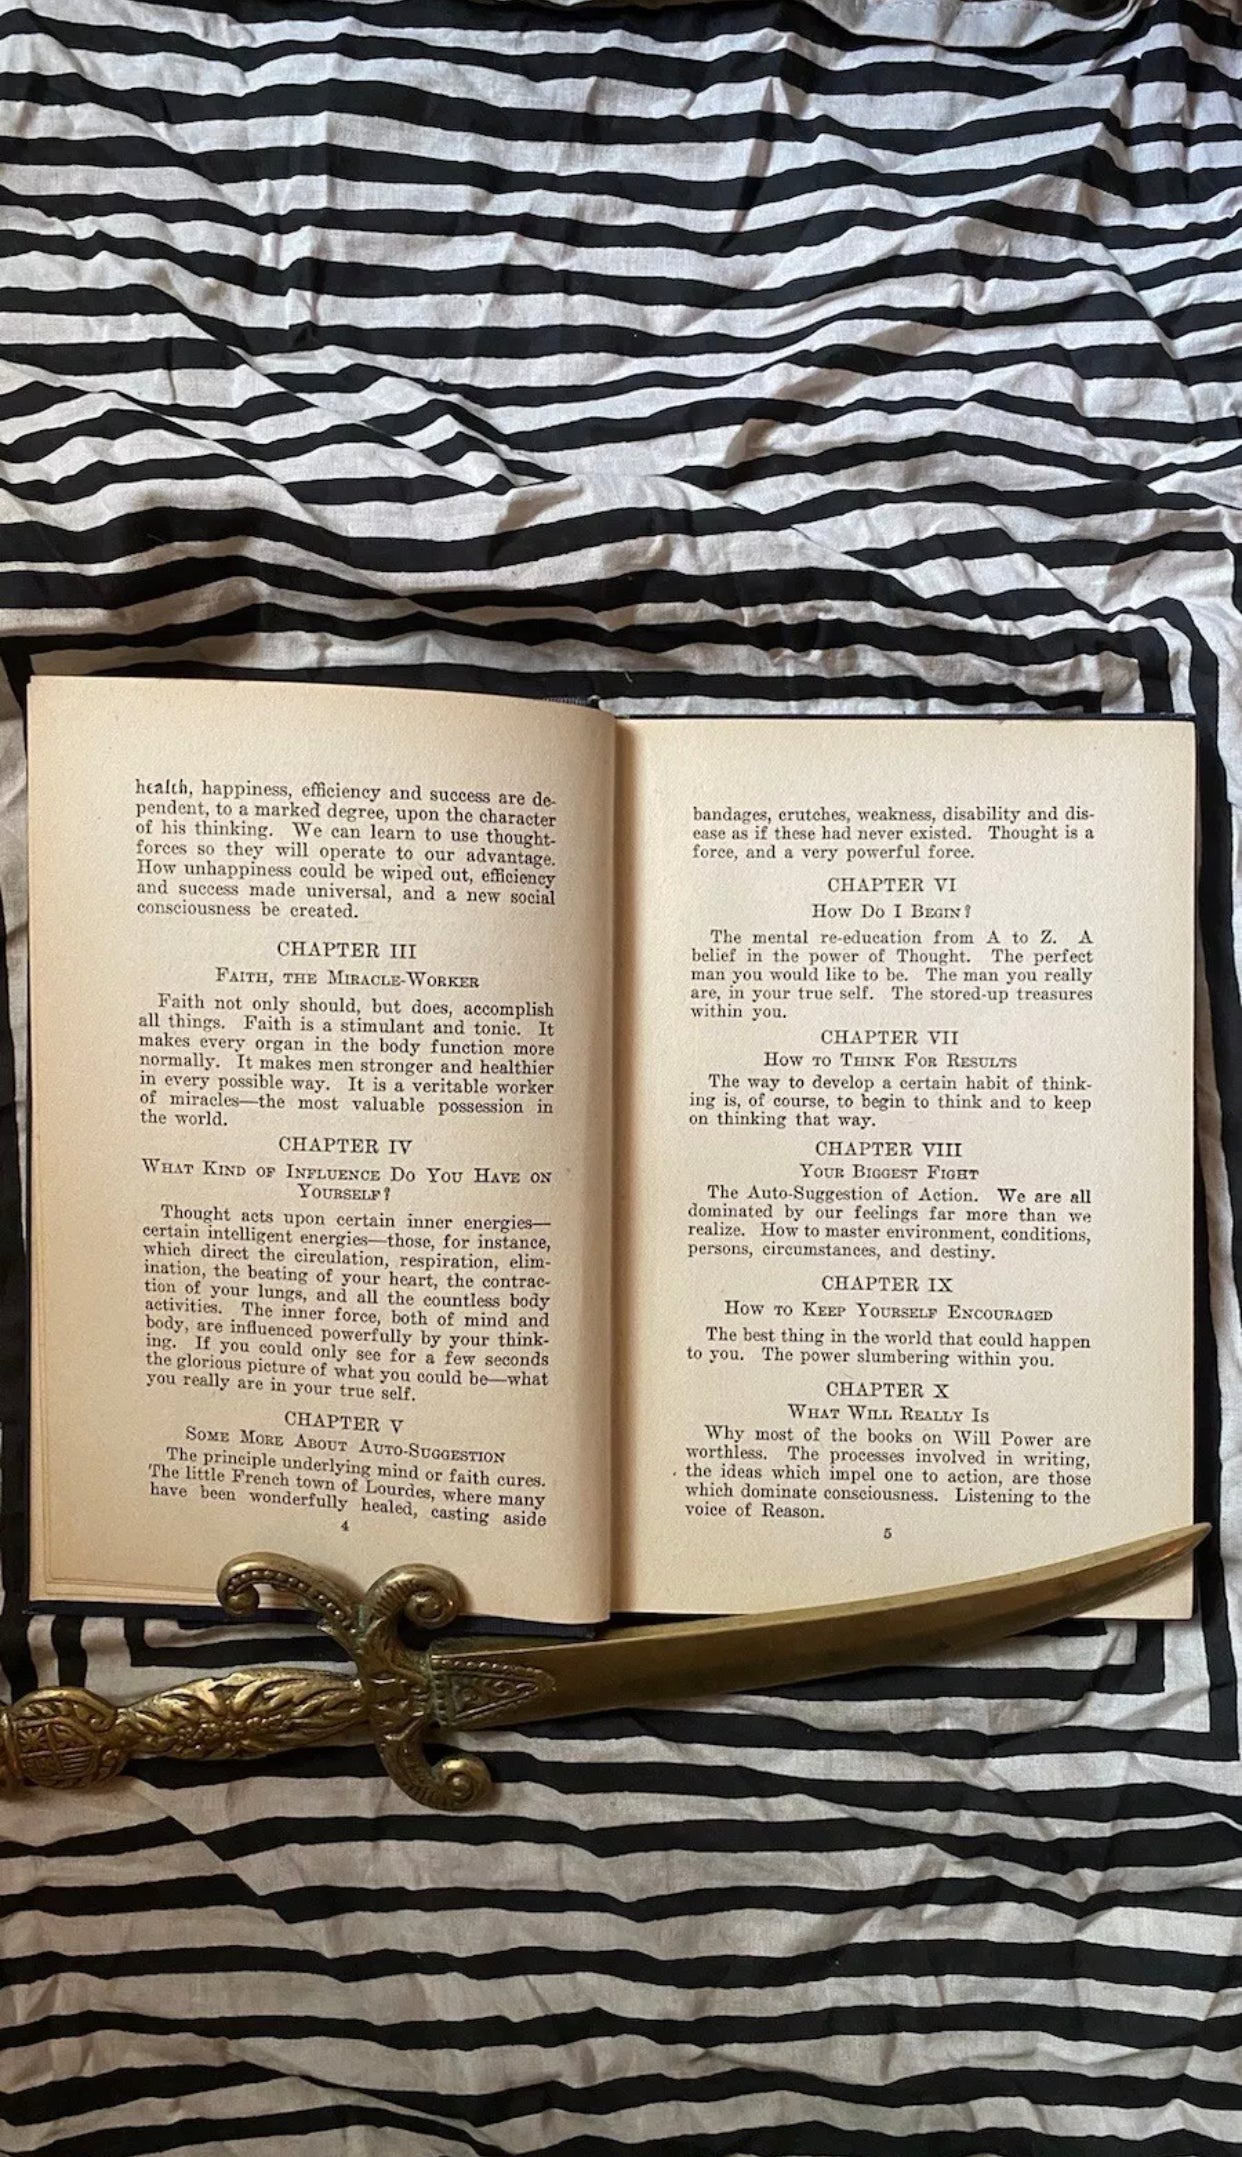 health, happiness, efficiency and success are de-
pendent, to a marked degree, upon the character
of his thinking. We can learn to use thought-
forces so they will operate to our advantage.
How unhappiness could be wiped out, efficiency
and success made universal, and a new social
consciousness be created.
CHAPTER III
FAITH, THE MIRACLE-WORKER
Faith not only should, but does, accomplish
all things. Faith is a stimulant and tonic. It
makes every organ in the body function more
normally. It makes men stronger and healthier
in every possible way. It is a veritable worker
of miracles—the most valuable possession in
the world.
CHAPTER IV
WHAT KIND OF INFLUENCE DO YOU HAVE ON
YOURSELF?
Thought acts upon certain inner energies—
certain intelligent energies—those, for instance,
which direct the circulation, respiration, elim-
ination, the beating of your heart, the contrac-
tion of your lungs, and all the countless body
activities. The inner force, both of mind and
body, are influenced powerfully by your think-
ing. If you could only see for a few seconds
the glorious picture of what you could be—what
you really are in your true self.
CHAPTER V
SOME MORE ABOUT AUTO-SUGGESTION
The principle underlying mind or faith cures.
The little French town of Lourdes, where many
have been wonderfully healed, casting aside
4
bandages, crutches, weakness, disability and dis-
ease as if these had never existed. Thought is a
force, and a very powerful force.
CHAPTER VI
HOW DO I BEGIN?
The mental re-education from A to Z. A
belief in the power of Thought. The perfect
man you would like to be. The man you really
are, in your true self. The stored-up treasures
within you.
CHAPTER VII
HOW TO THINK FOR RESULTS
The way to develop a certain habit of think-
ing is, of course, to begin to think and to keep
on thinking that way.
CHAPTER VIII
YOUR BIGGEST FIGHT
The Auto-Suggestion of Action. We are all
dominated by our feelings far more than we
realize. How to master environment, conditions,
persons, circumstances, and destiny.
CHAPTER IX
HOW TO KEEP YOURSELF ENCOURAGED
The best thing in the world that could happen
to you. The power slumbering within you.
CHAPTER X
WHAT WILL REALLY IS
Why most of the books on Will Power are
worthless. The processes involved in writing,
the ideas which impel one to action, are those
which dominate consciousness. Listening to the
voice of Reason.
5